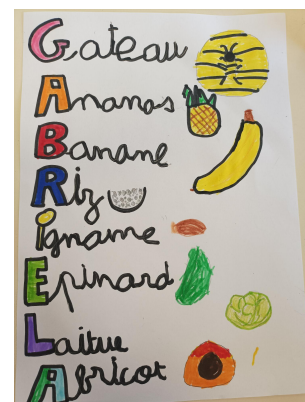 Gateau
Ananas
Banane
Riz
igname
Epinard
Laitue
Abricot